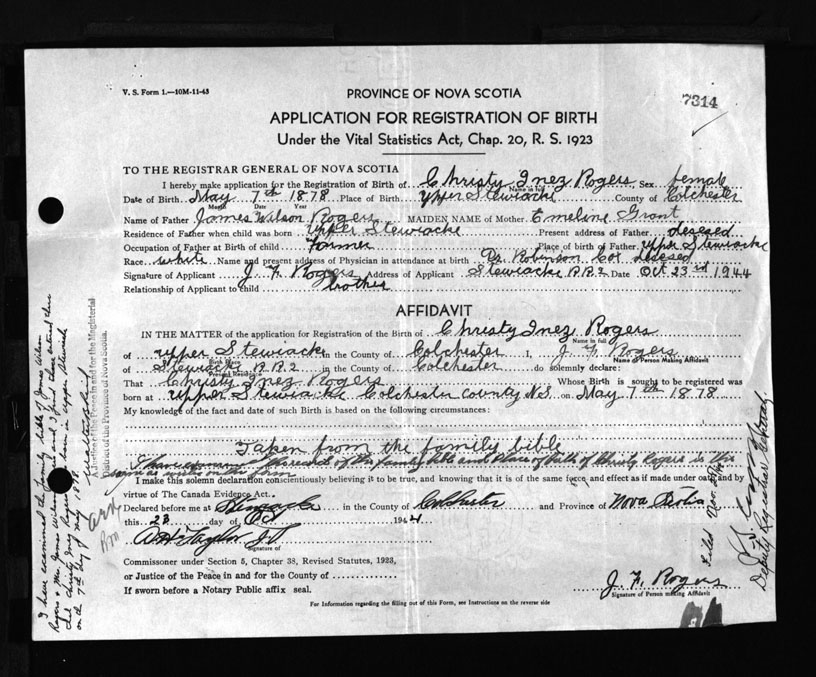 V. S. Form 1.—10M-11-43
PROVINCE OF NOVA SCOTIA
7314
APPLICATION FOR REGISTRATION OF BIRTH
Under the Vital Statistics Act, Chap. 20, R. S. 1923
TO THE REGISTRAR GENERAL OF NOVA SCOTIA
I hereby make application for the Registration of Birth of Christy Inez Rogers, Sex female
Name in full
Date of Birth May 7th 1878 Place of Birth Upper Stewiacke County of Colchester
Month Date Year
Name of Father James Wilson Rogers MAIDEN NAME of Mother Emeline Grant
Residence of Father when child was born Upper Stewiacke Present address of Father desesed
Occupation of Father at Birth of child Farmer Place of birth of Father Upper Stewiacke
Race white Name and present address of Physician in attendance at birth Dr Robinson Cox desesed
Signature of Applicant J. F. Rogers Address of Applicant Stewiacke R.R.2 Date Oct 23rd 1944
Relationship of Applicant to child brother
AFFIDAVIT
IN THE MATTER of the application for Registration of the Birth of Christy Inez Rogers
Name in full
of upper Stewiacke in the County of Colchester I, J F Rogers
Birth Place
Name of Person Making Affidavit
of Stewiack R.R.2 in the County of Colchester do solemnly declare:
Present Residence
That Christy Inez Rogers Whose Birth is sought to be registered was
born at Upper Stewiacke Colchester County N.S. on May 7th 1878
My knowledge of the fact and date of such Birth is based on the following circumstances:
Taken from the family bible
I make this solemn declaration conscientiously believing it to be true, and knowing that it is of the same force and effect as if made under oath and by
virtue of The Canada Evidence Act.
Declared before me at Stewiacke in the County of Colchester and Province of Nova Scotia
this 23 day of Oct 1944
A H Taylor J.P.
Signature of
Commissioner under Section 5, Chapter 38, Revised Statutes, 1923,
or Justice of the Peace in and for the County of
If sworn before a Notary Public affix seal.
J. F. Rogers
Signature of Person making Affidavit
For Information regarding the filling out of this Form, see Instructions on the reverse side
I have examined the family bible of James Wilson
Rogers & Mrs. James Wilson and I find there entered
Christy Inez Rogers born in upper Stewiack
on the 7th day of May 1878.
A Justice of the Peace in and for the Magisterial
District of the Province of Nova Scotia.
Deputy Registrar General